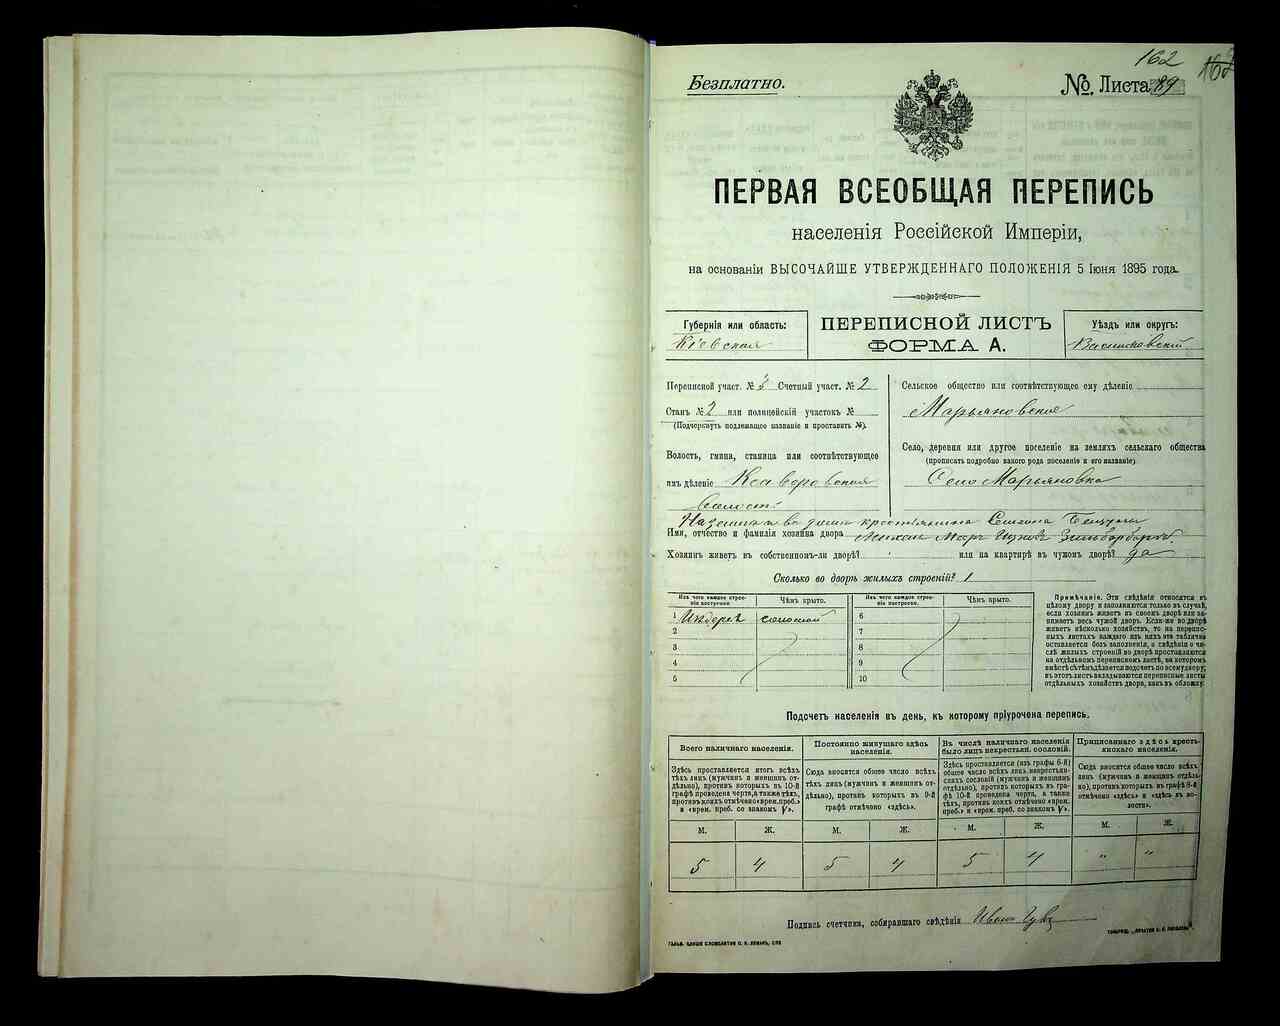 162
Безплатно.
№ Листа 89
ПЕРВАЯ ВСЕОБЩАЯ ПЕРЕПИСЬ
населенія Россійской Имперіи,
на основаніи ВЫСОЧАЙШЕ УТВЕРЖДЕННАГО ПОЛОЖЕНІЯ 5 Іюня 1895 года.
Губернія или область:
Кіевская
ПЕРЕПИСНОЙ ЛИСТЪ
ФОРМА А.
Уѣздъ или округъ:
Васильковскій
Переписной участ. № 3 Счетный участ. № 2
Станъ № 2 или полицейскій участокъ №
(Подчеркнуть подлежащее названіе и проставить №).
Волость, гмина, станица или соотвѣтствующее
имъ дѣленіе Ксаверовская
волость
Сельское общество или соотвѣтствующее ему дѣленіе
Марьяновское
Село, деревня или другое поселеніе на земляхъ сельскаго общества
(прописать подробно какого рода поселеніе и его названіе)
Село Марьяновка
крестьянина
Имя, отчество и фамилія хозяина двора
Хозяинъ живетъ въ собственномъ-ли дворѣ? или на квартирѣ въ чужомъ дворѣ? да
Сколько во дворѣ жилыхъ строеній? 1
Изъ чего каждое строеніе построено.
Чѣмъ крыто.
Изъ чего каждое строеніе построено.
Чѣмъ крыто.
1 Изъ дерева соломой
2
3
4
5
6
7
8
9
10
Примѣчаніе. Эти свѣдѣнія относятся къ
цѣлому двору и заполняются только въ случаѣ,
если хозяинъ живетъ въ своемъ дворѣ или занимаетъ
весь чужой дворъ. Если-же во дворѣ
живетъ нѣсколько хозяйствъ, то на переписныхъ
листахъ каждаго изъ нихъ эта табличка
оставляется безъ заполненія, а свѣдѣнія о числѣ
жилыхъ строеній во дворѣ проставляются
на отдѣльномъ переписномъ листѣ, на которомъ
вмѣстѣ съ тѣмъ дѣлается подсчетъ по всему двору;
въ этотъ листъ вкладываются переписные листы
отдѣльныхъ хозяйствъ двора, какъ въ обложку.
Подсчетъ населенія въ день, къ которому пріурочена перепись.
Всего наличнаго населенія.
Здѣсь проставляется итогъ всѣхъ
тѣхъ лицъ (мужчинъ и женщинъ отдѣльно),
противъ которыхъ въ 10-й
графѣ проведена черта, а также тѣхъ,
противъ коихъ отмѣчено «врем. преб.»
и «врем. преб. со знакомъ V».
Постоянно живущаго здѣсь
населенія.
Сюда вносится общее число всѣхъ
тѣхъ лицъ (мужчинъ и женщинъ отдѣльно),
противъ которыхъ въ 9-й
графѣ отмѣчено «здѣсь».
Въ числѣ наличнаго населенія
было лицъ некрестьян. сословій.
Здѣсь проставляется (изъ графы 6-й)
общее число всѣхъ лицъ некрестьянскихъ
сословій (мужчинъ и женщинъ
отдѣльно), противъ которыхъ въ графѣ
10-й проведена черта, а также
тѣхъ, противъ коихъ отмѣчено «врем.
преб.» и «врем. преб. со знакомъ V».
Приписаннаго здѣсь крестьянскаго
населенія.
Сюда вносится общее число всѣхъ
лицъ (мужчинъ и женщинъ отдѣльно),
противъ которыхъ въ графѣ 8-й
отмѣчено «здѣсь» и «здѣсь въ волости».
М. Ж. М. Ж. М. Ж. М. Ж.
5 4 5 4 5 4 " "
Подпись счетчика, собиравшаго свѣдѣнія Иванъ